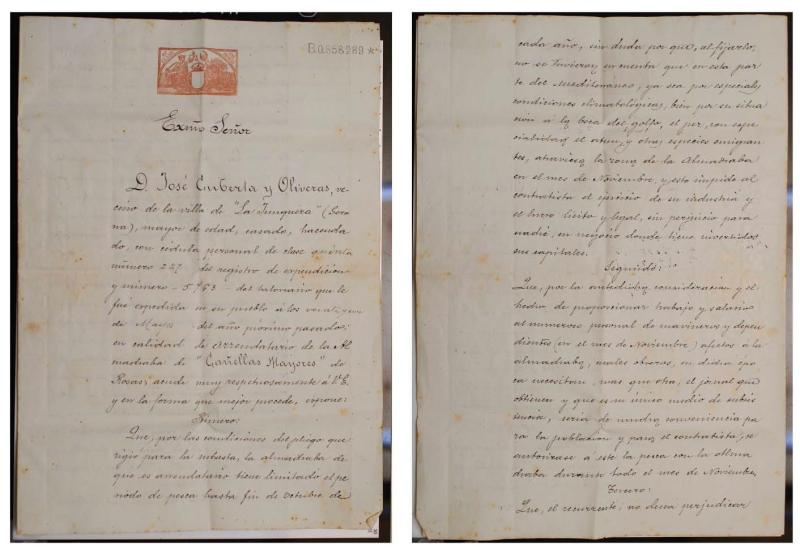 B.0.858.289 *
Exmo Señor
D. José Cuberta y Oliveras, ve-
cino de la villa de "La Junquera" (Gero
na), mayor de edad, casado, hacenda
do, con cédula personal de clase quinta
número 227 del registro de expendicion
y número 5,763 del talonario que le
fué expedida en su pueblo á los
de Mayo del año próximo pasado;
en calidad de arrendatario de la Al
madraba de "Canellas Mayores" de
Rosas, acude muy respetuosamente á V.E.
y en la forma que mejor procede, expone:
Primero:
Que, por las condiciones del pliego que
rigió para la subasta, la almadraba de
que es arrendatario tiene limitado el pe
riodo de pesca hasta fin de Octubre de
cada año, sin duda por que, al fijarlo,
no se tuvieran en cuenta que en esta par
te del Mediterráneo, ya sea por especiales
condiciones climatológicas, bien por su situa
ción á la boca del golfo, el pez, con espe
cialidad el atun y otras especies emigran
tes, atraviesa la zona de la Almadraba
en el mes de Noviembre, y esto impide al
contratista el ejercicio de su industria y
el lucro lícito y legal, sin perjuicio para
nadie, en negocio donde tiene invertidos
sus capitales.
Segundo:
Que, por la antedicha consideracion y el
hecho de proporcionar trabajo y salario
al numeroso personal de marineros y depen
dientes (en el mes de Noviembre) afectos á la
almadraba, cuales obreros, en dicha épo
ca necesitan, mas que otra, el jornal que
obtienen y que es su único medio de subsis
tencia, seria de mucha conveniencia pa
ra la poblacion y para el contratista, se
autorizase á este la pesca con la Alma
draba durante todo el mes de Noviembre.
Tercero:
Que, el recurrente, no desea perjudicar